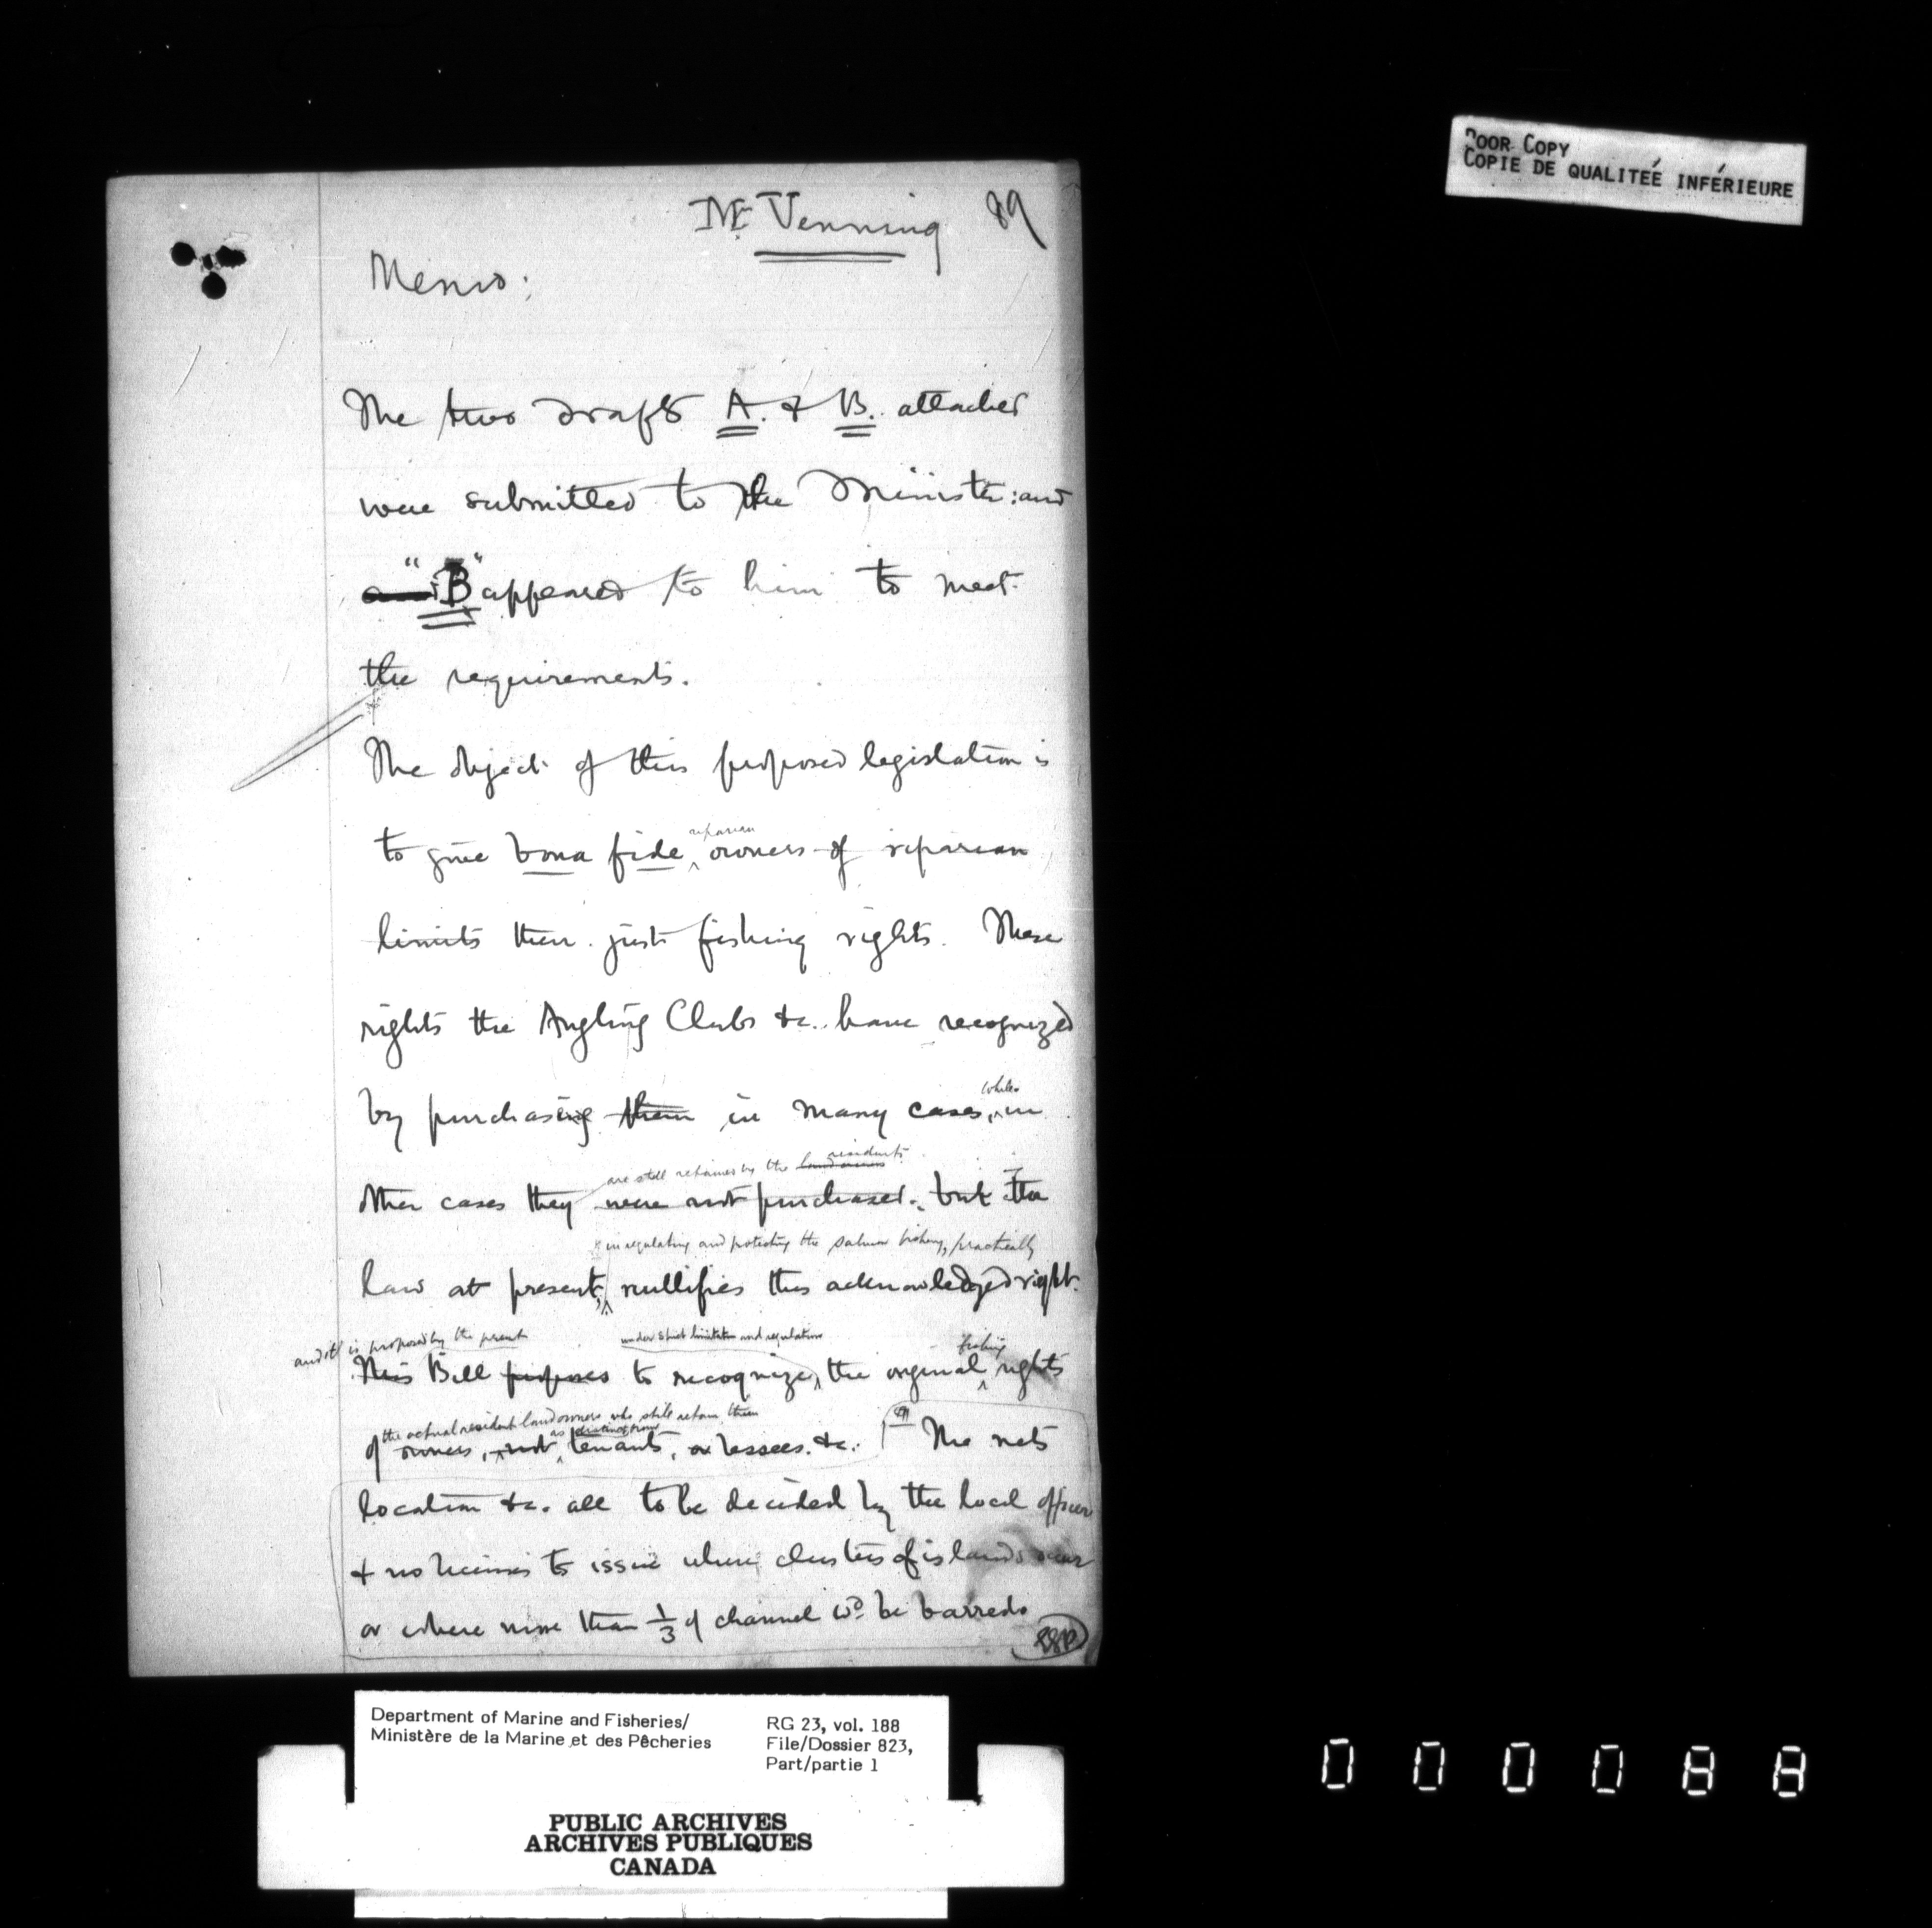 POOR COPY
COPIE DE QUALITEÉ INFÉRIEURE
Mr Venning 89
Memo:
The two drafts A. & B. attached
were submitted to the Minister: and
and "B" appeared to him to meet
the requirements.
The object of this proposed legislation is
riparian
to give bona fide owners of riparian
limits their just fishing rights. These
rights the Angling Clubs &c. have recognized
while
by purchasing them in many cases, in
are still retained by the landowners residents
other cases they were not purchased. but The
in regulating and protecting the salmon fishery, practically
law at present, nullifies this acknowledged right.
and it is proposed by the present under strict limitation and regulations fishing
This Bill proposes to recognize the original rights
the actual resident landowners who still retain them
as distinct from
of owners, not tenants, or lessees. &c. The nets
location &c. all to be decided by the local officer
& no licenses to issue where clusters of islands occur
or where more than 1/3 of channel wd. be barred.
Department of Marine and Fisheries/
Ministère de la Marine et des Pêcheries
RG 23, vol. 188
File/Dossier 823,
Part/partie 1
PUBLIC ARCHIVES
ARCHIVES PUBLIQUES
CANADA
000088